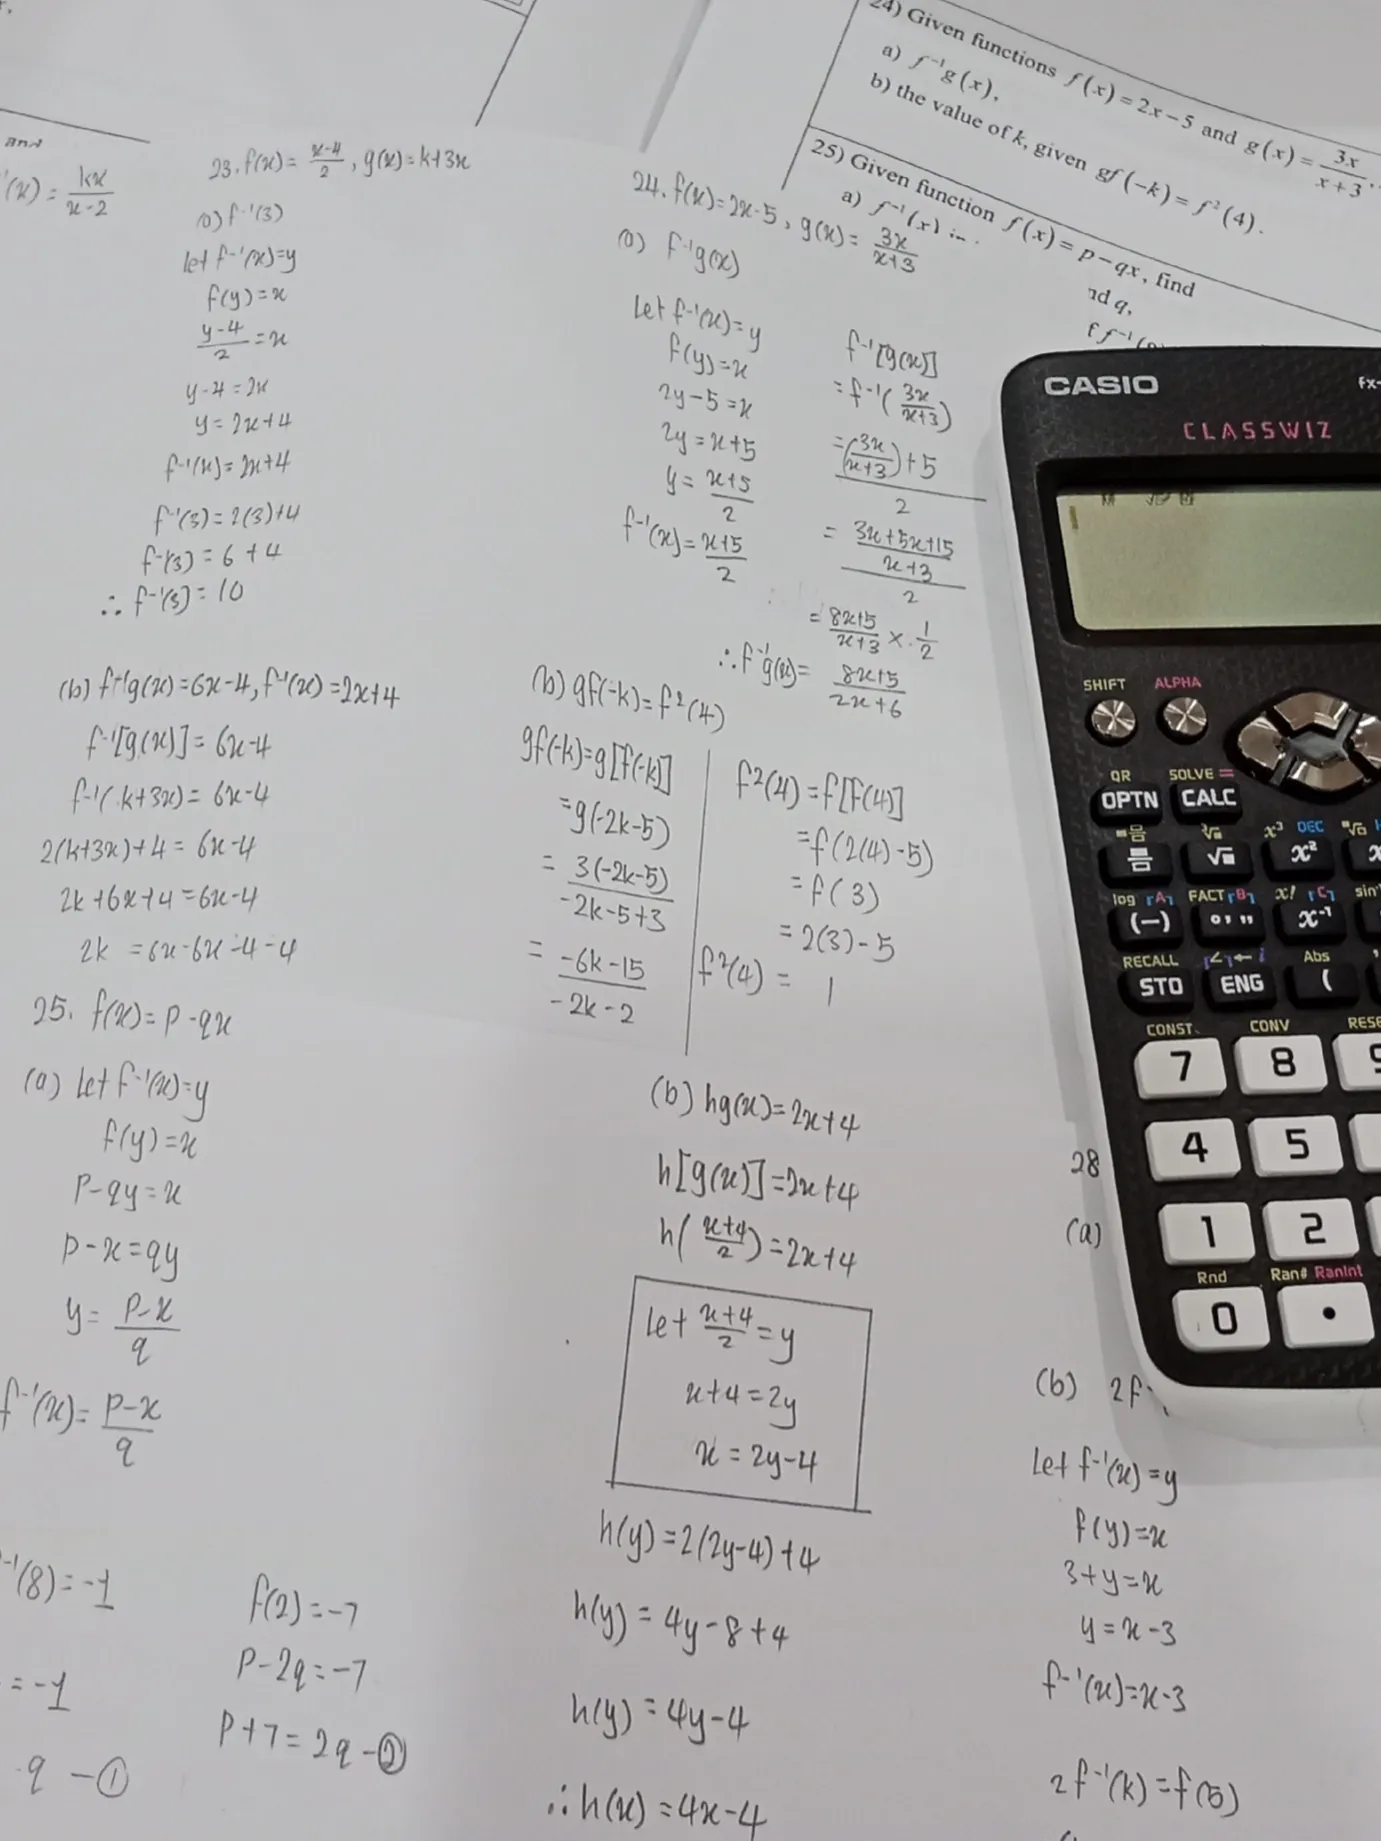 24) Given functions f(x) = 2x − 5 and g(x) = 3x/(x + 3),
a) f⁻¹g(x),
b) the value of k, given gf(−k) = f²(4).
25) Given function f(x) = p − qx, find
a) f⁻¹(x) in
nd q,
and
⁻¹(x) = kx/(x-2)
23. f(x) = (x-4)/2, g(x) = k+3x
(a) f⁻¹(3)
let f⁻¹(x)=y
f(y)=x
(y-4)/2 = x
y-4=2x
y=2x+4
f⁻¹(x)=2x+4
f⁻¹(3)=2(3)+4
f⁻¹(3)=6+4
∴ f⁻¹(3)=10
(b) f⁻¹g(x)=6x-4, f⁻¹(x)=2x+4
f⁻¹[g(x)]=6x-4
f⁻¹(k+3x)=6x-4
2(k+3x)+4=6x-4
2k+6x+4=6x-4
2k =6x-6x-4-4
24. f(x)=2x-5, g(x)= 3x/(x+3)
(a) f⁻¹g(x)
Let f⁻¹(x)=y
f(y)=x
2y-5=x
2y=x+5
y= (x+5)/2
f⁻¹(x)= (x+5)/2
f⁻¹[g(x)]
=f⁻¹(3x/(x+3))
=((3x/(x+3))+5)/2
= ((3x+5x+15)/(x+3))/2
= (8x+5)/(x+3) × 1/2
∴ f⁻¹g(x)= (8x+5)/(2x+6)
(b) gf(-k)=f²(4)
gf(-k)=g[f(-k)]
=g(-2k-5)
= 3(-2k-5)/(-2k-5+3)
= (-6k-15)/(-2k-2)
f²(4)=f[f(4)]
=f(2(4)-5)
=f(3)
=2(3)-5
f²(4) = 1
25. f(x)=p-qx
(a) Let f⁻¹(x)=y
f(y)=x
p-qy=x
p-x=qy
y= (p-x)/q
f⁻¹(x)= (p-x)/q
⁻¹(8)=-1
=-1
q -①
f(2)=-7
p-2q=-7
p+7=2q-②
(b) hg(x)=2x+4
h[g(x)]=2x+4
h((x+4)/2)=2x+4
let (x+4)/2 =y
x+4=2y
x=2y-4
h(y)=2(2y-4)+4
h(y)=4y-8+4
h(y)=4y-4
∴ h(x)=4x-4
28
(a)
(b) 2f⁻
Let f⁻¹(x)=y
f(y)=x
3+y=x
y=x-3
f⁻¹(x)=x-3
2f⁻¹(k)=f(5)
CASIO fx-
CLASSWIZ
SHIFT ALPHA
QR SOLVE =
OPTN CALC
x³ DEC
√ x²
log [A] FACT [B] x! [C] sin⁻
(−) ° ' " x⁻¹
RECALL ∠ ← i Abs
STO ENG (
CONST CONV RESE
7 8 9
4 5
1 2
Rnd Ran# RanInt
0 •